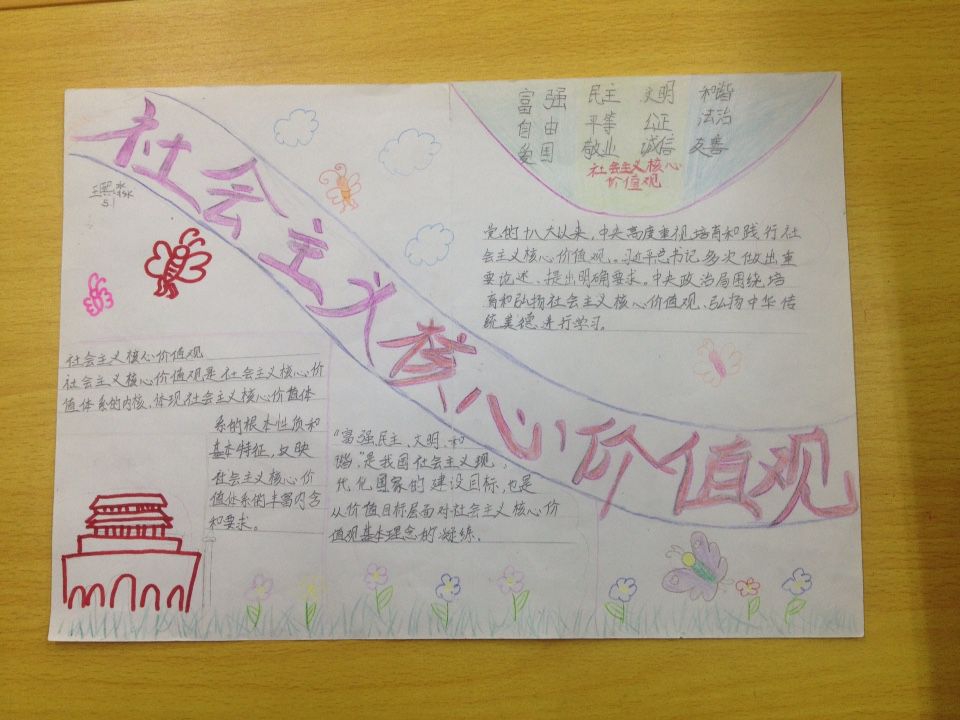 社会主义核心价值观
富强 民主 文明 和谐
自由 平等 公正 法治
爱国 敬业 诚信 友善
社会主义核心
价值观
5.1
党的十八大以来,中央高度重视培育和践行社
会主义核心价值观。习近平总书记多次做出重
要论述、提出明确要求。中央政治局围绕培
育和弘扬社会主义核心价值观、弘扬中华传
统美德进行学习。
社会主义核心价值观
社会主义核心价值观是社会主义核心价
值体系的内核,体现社会主义核心价值体
系的根本性质和
基本特征,反映
社会主义核心价
值体系的丰富内含
和要求。
“富强民主、文明、和
谐”是我国社会主义现
代化国家的建设目标,也是
从价值目标层面对社会主义核心价
值观基本理念的凝练.